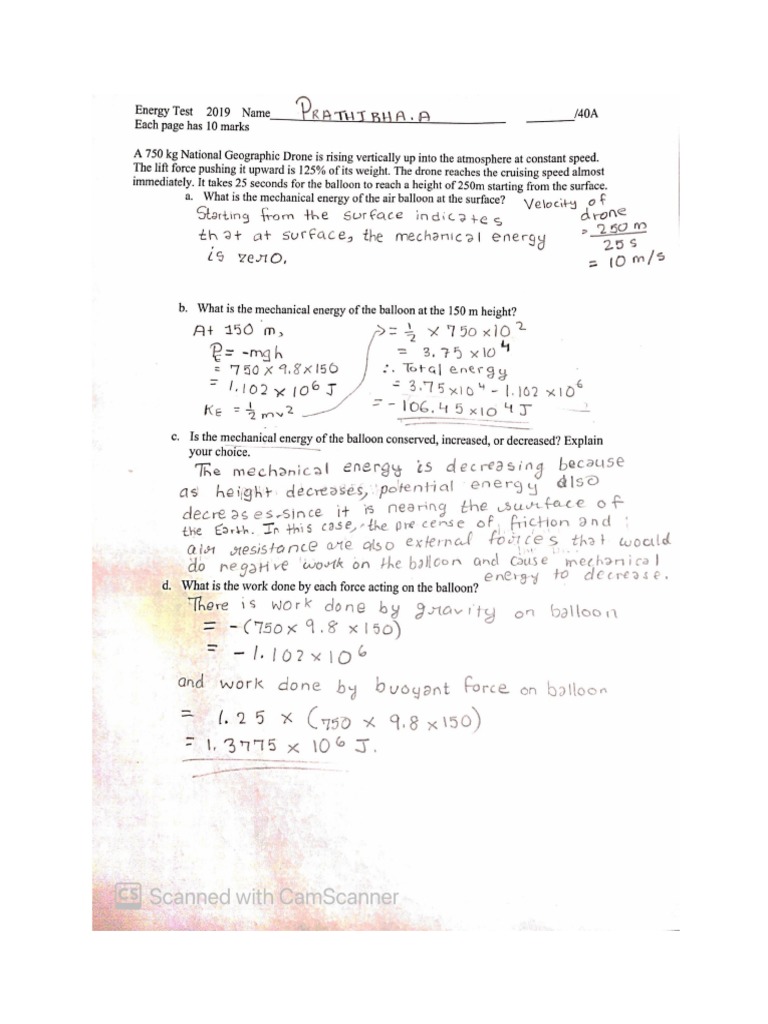 Energy Test 2019 Name PRATHIBHA.A /40A
Each page has 10 marks
A 750 kg National Geographic Drone is rising vertically up into the atmosphere at constant speed.
The lift force pushing it upward is 125% of its weight. The drone reaches the cruising speed almost
immediately. It takes 25 seconds for the balloon to reach a height of 250m starting from the surface.
a. What is the mechanical energy of the air balloon at the surface?
Starting from the surface indicates
that at surface, the mechanical energy
is zero.
Velocity of
drone
= 250 m
25 s
= 10 m/s
b. What is the mechanical energy of the balloon at the 150 m height?
At 150 m,
PE = -mgh
= 750 x 9.8 x 150
= 1.102 x 10^6 J
KE = 1/2 mv^2
= 1/2 x 750 x 10^2
= 3.75 x 10^4
∴ Total energy
= 3.75 x 10^4 - 1.102 x 10^6
= - 106.45 x 10^4 J
c. Is the mechanical energy of the balloon conserved, increased, or decreased? Explain
your choice.
The mechanical energy is decreasing because
as height decreases, potential energy also
decreases. since it is nearing the surface of
the Earth. In this case, the precense of friction and
air resistance are also external forces that would
do negative work on the balloon and cause mechanical
energy to decrease.
d. What is the work done by each force acting on the balloon?
There is work done by gravity on balloon
= -(750 x 9.8 x 150)
= - 1.102 x 10^6
and work done by buoyant force on balloon
= 1.25 x (750 x 9.8 x 150)
= 1.3775 x 10^6 J.
CS Scanned with CamScanner